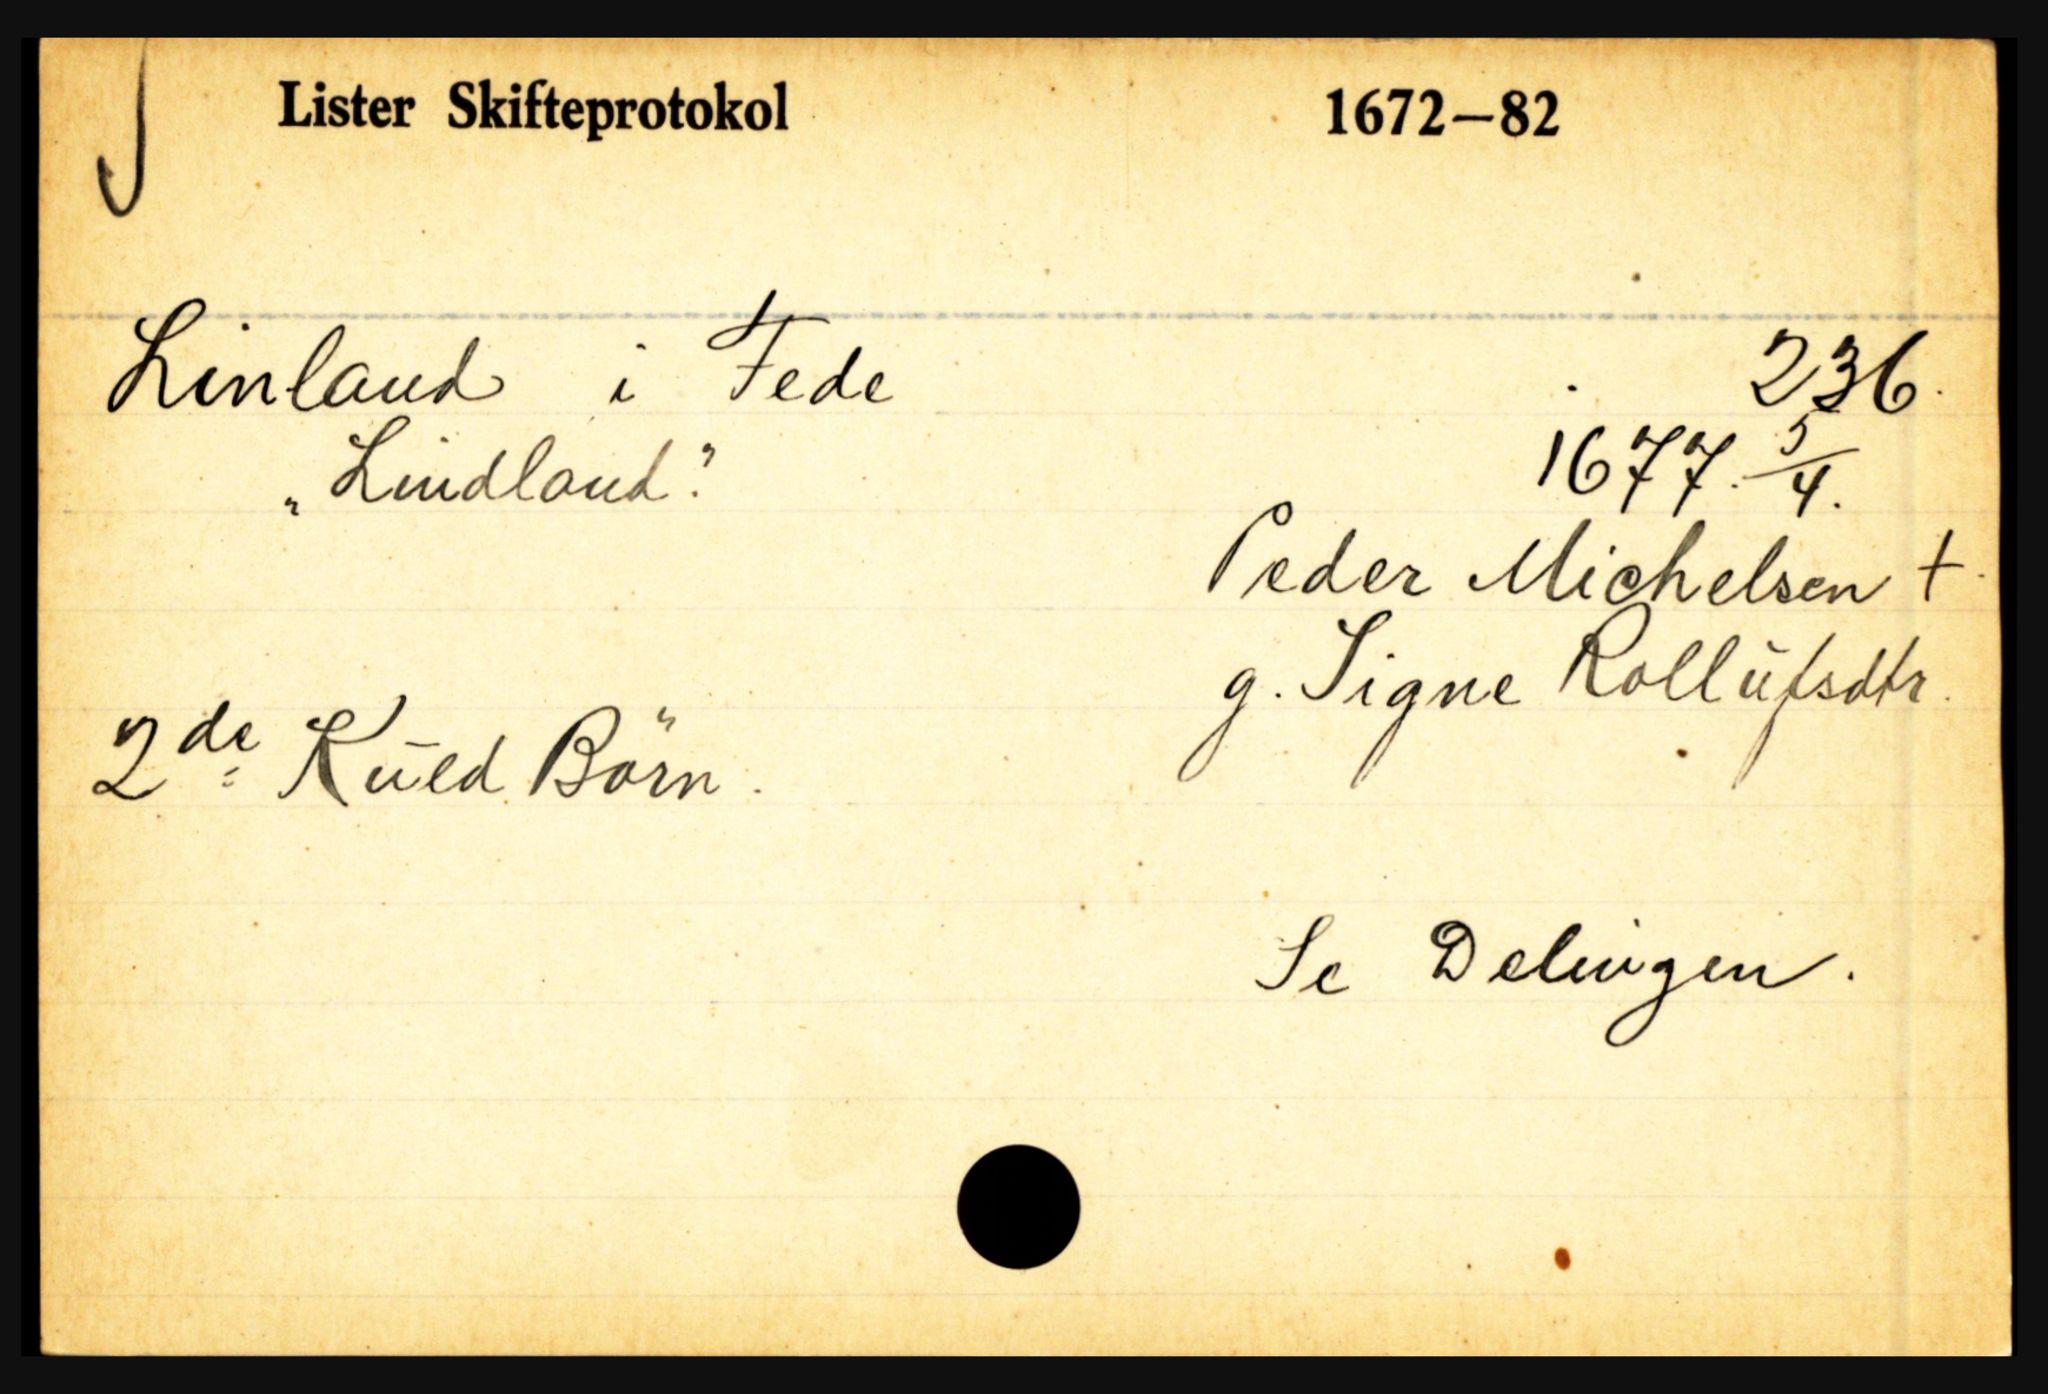 Lister Skifteprotokol 1672—82
Linland i Fede 236.
„Lindland." 1677. 5/4.
Peder Michelsen †.
g. Signe Rollüfsdtr.
2de Kŭld Börn.
Se Delingen.